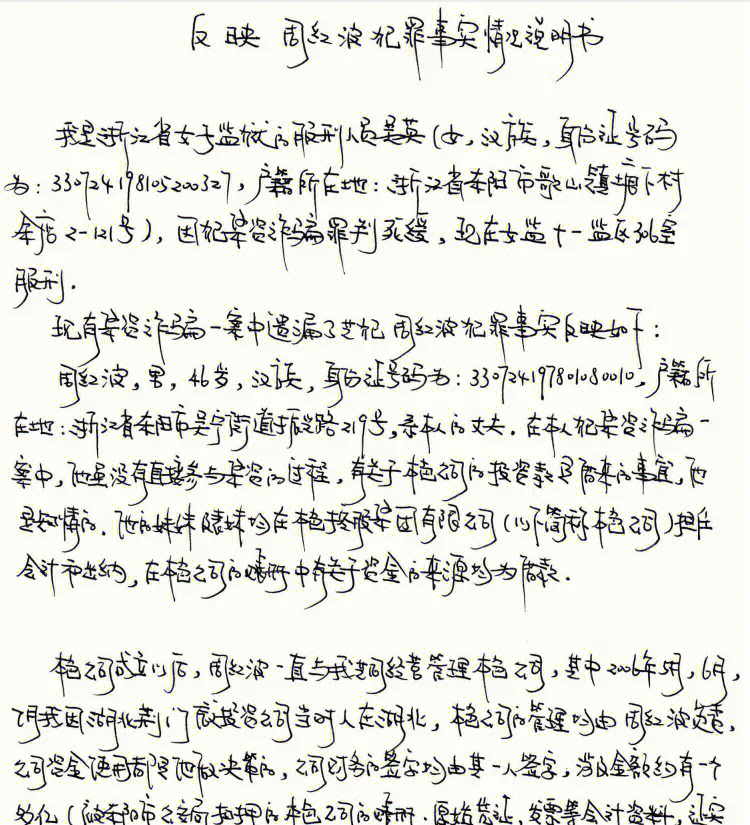 反映周红波犯罪事实情况说明书
我是浙江省女子监狱的服刑人员吴英(女,汉族,身份证号码
为:330724198105200327,户籍所在地:浙江省东阳市歌山镇塘下村
2-121号),因犯集资诈骗罪判死缓,现在女监十一监区306室
服刑.
现有集资诈骗一案中遗漏了共犯周红波犯罪事实反映如下:
周红波,男,46岁,汉族,身份证号码为:330724197801080010,户籍所
在地:浙江省东阳市吴宁街道振兴路219号,系本人的丈夫.在本人犯集资诈骗一
案中,他虽没有直接参与集资的过程,有关于本色公司的投资款是借来的事宜,他
是知情的.他的妹妹随妹均在本色控股集团有限公司(以下简称本色公司)担任
会计和出纳,在本色公司的账册中有关于资金的来源均为借款.
本色公司成立以后,周红波一直与我共同经营管理本色公司,其中2006年5月,6月,
7月我因湖北荆门投资公司当时人在湖北,本色公司的管理均由周红波负责,
公司资金使用都是他做决策的,公司财务的签字均由其一人签字,涉及金额约有一个
多亿(被东阳市公安局扣押的本色公司的账册.原始凭证,发票等会计资料,证实